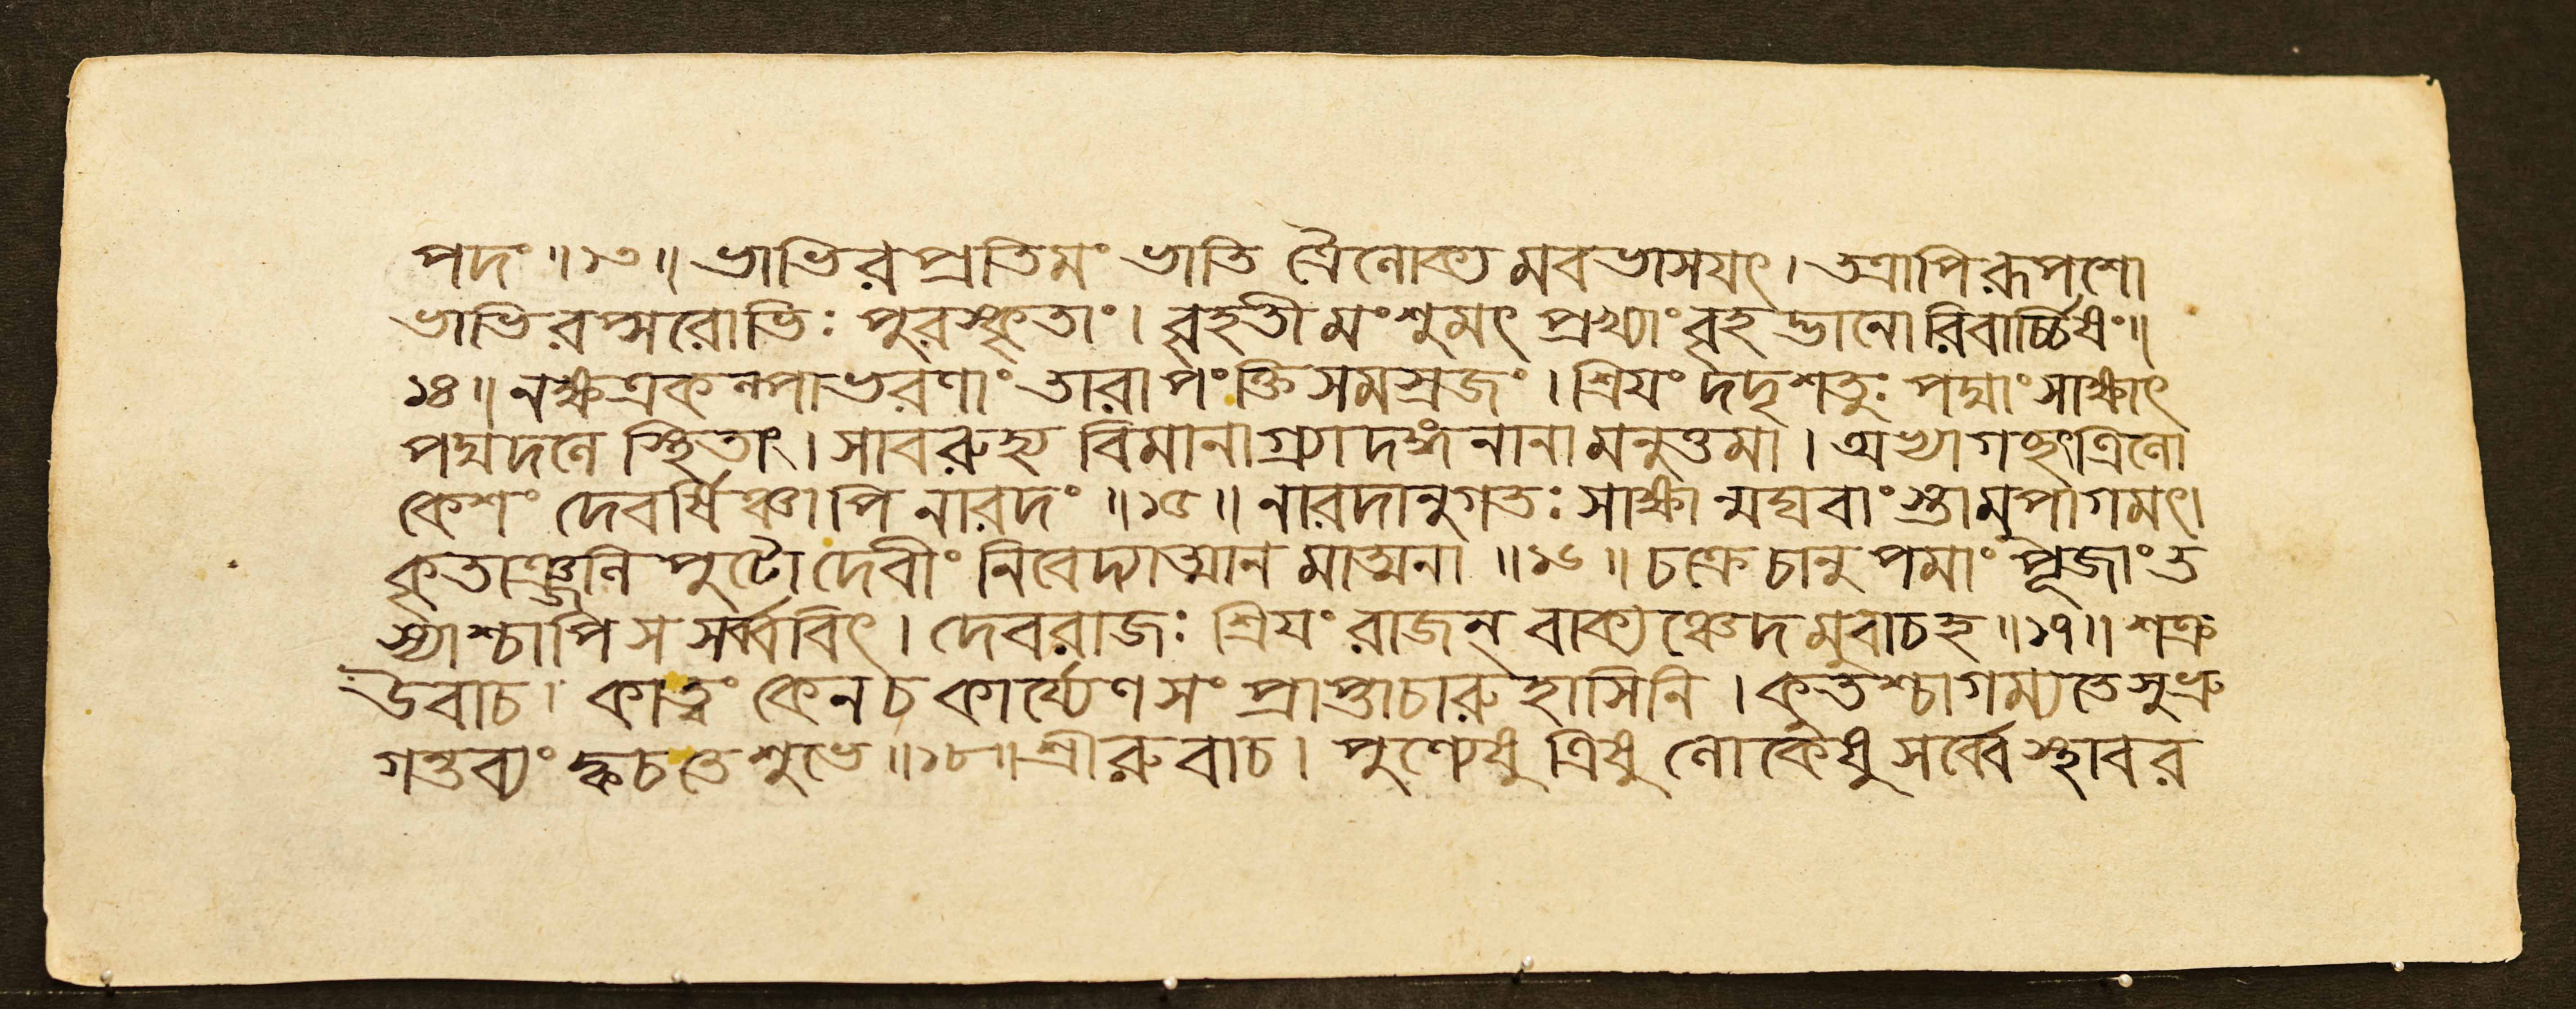 পদং ॥১৩॥ ভাভিরপ্রতিমং ভাতি ত্রৈলোক্যমবভাসযৎ। তত্রাপিরূপশো
ভাভিরপ্সরোভিঃ পুরস্কৃতাং। বৃহতীমংশুমৎ প্রখ্যাং বৃহদ্ভানোরিবার্চ্চিষং॥
১৪॥ নক্ষত্রকল্পাভরণাং তারাপংক্তিসমস্রজং। শ্রিযং দদৃশতুঃ পদ্মাং সাক্ষাৎ
পদ্মদলে স্থিতাং। সাবরুহ্য বিমানাগ্র্যাদঙ্গনানামনুত্তমা। অভ্যাগচ্ছৎত্রিলো
কেশং দেবর্ষিঞ্চাপি নারদং ॥১৫॥ নারদানুগতঃ সাক্ষান্মঘবাংস্তামুপাগমৎ।
কৃতাঞ্জলিপুটো দেবীং নিবেদ্যাত্মানমাত্মনা ॥১৬॥ চক্রে চানুপমাং পূজাং ত
স্যাশ্চাপি স সর্ব্ববিৎ। দেবরাজঃ শ্রিযং রাজন্ বাক্যঞ্চেদমুবাচহ ॥১৭॥ শক্র
উবাচ। কাত্বং কেনচ কার্য্যেণ সংপ্রাপ্তাচারুহাসিনি। কুতশ্চাগম্যতেসুভ্রু
গন্তব্যং ক্বচতে শুভে ॥১৮॥ শ্রীরুবাচ। পুণ্যেষু ত্রিষু লোকেষু সর্ব্বেস্থাবর